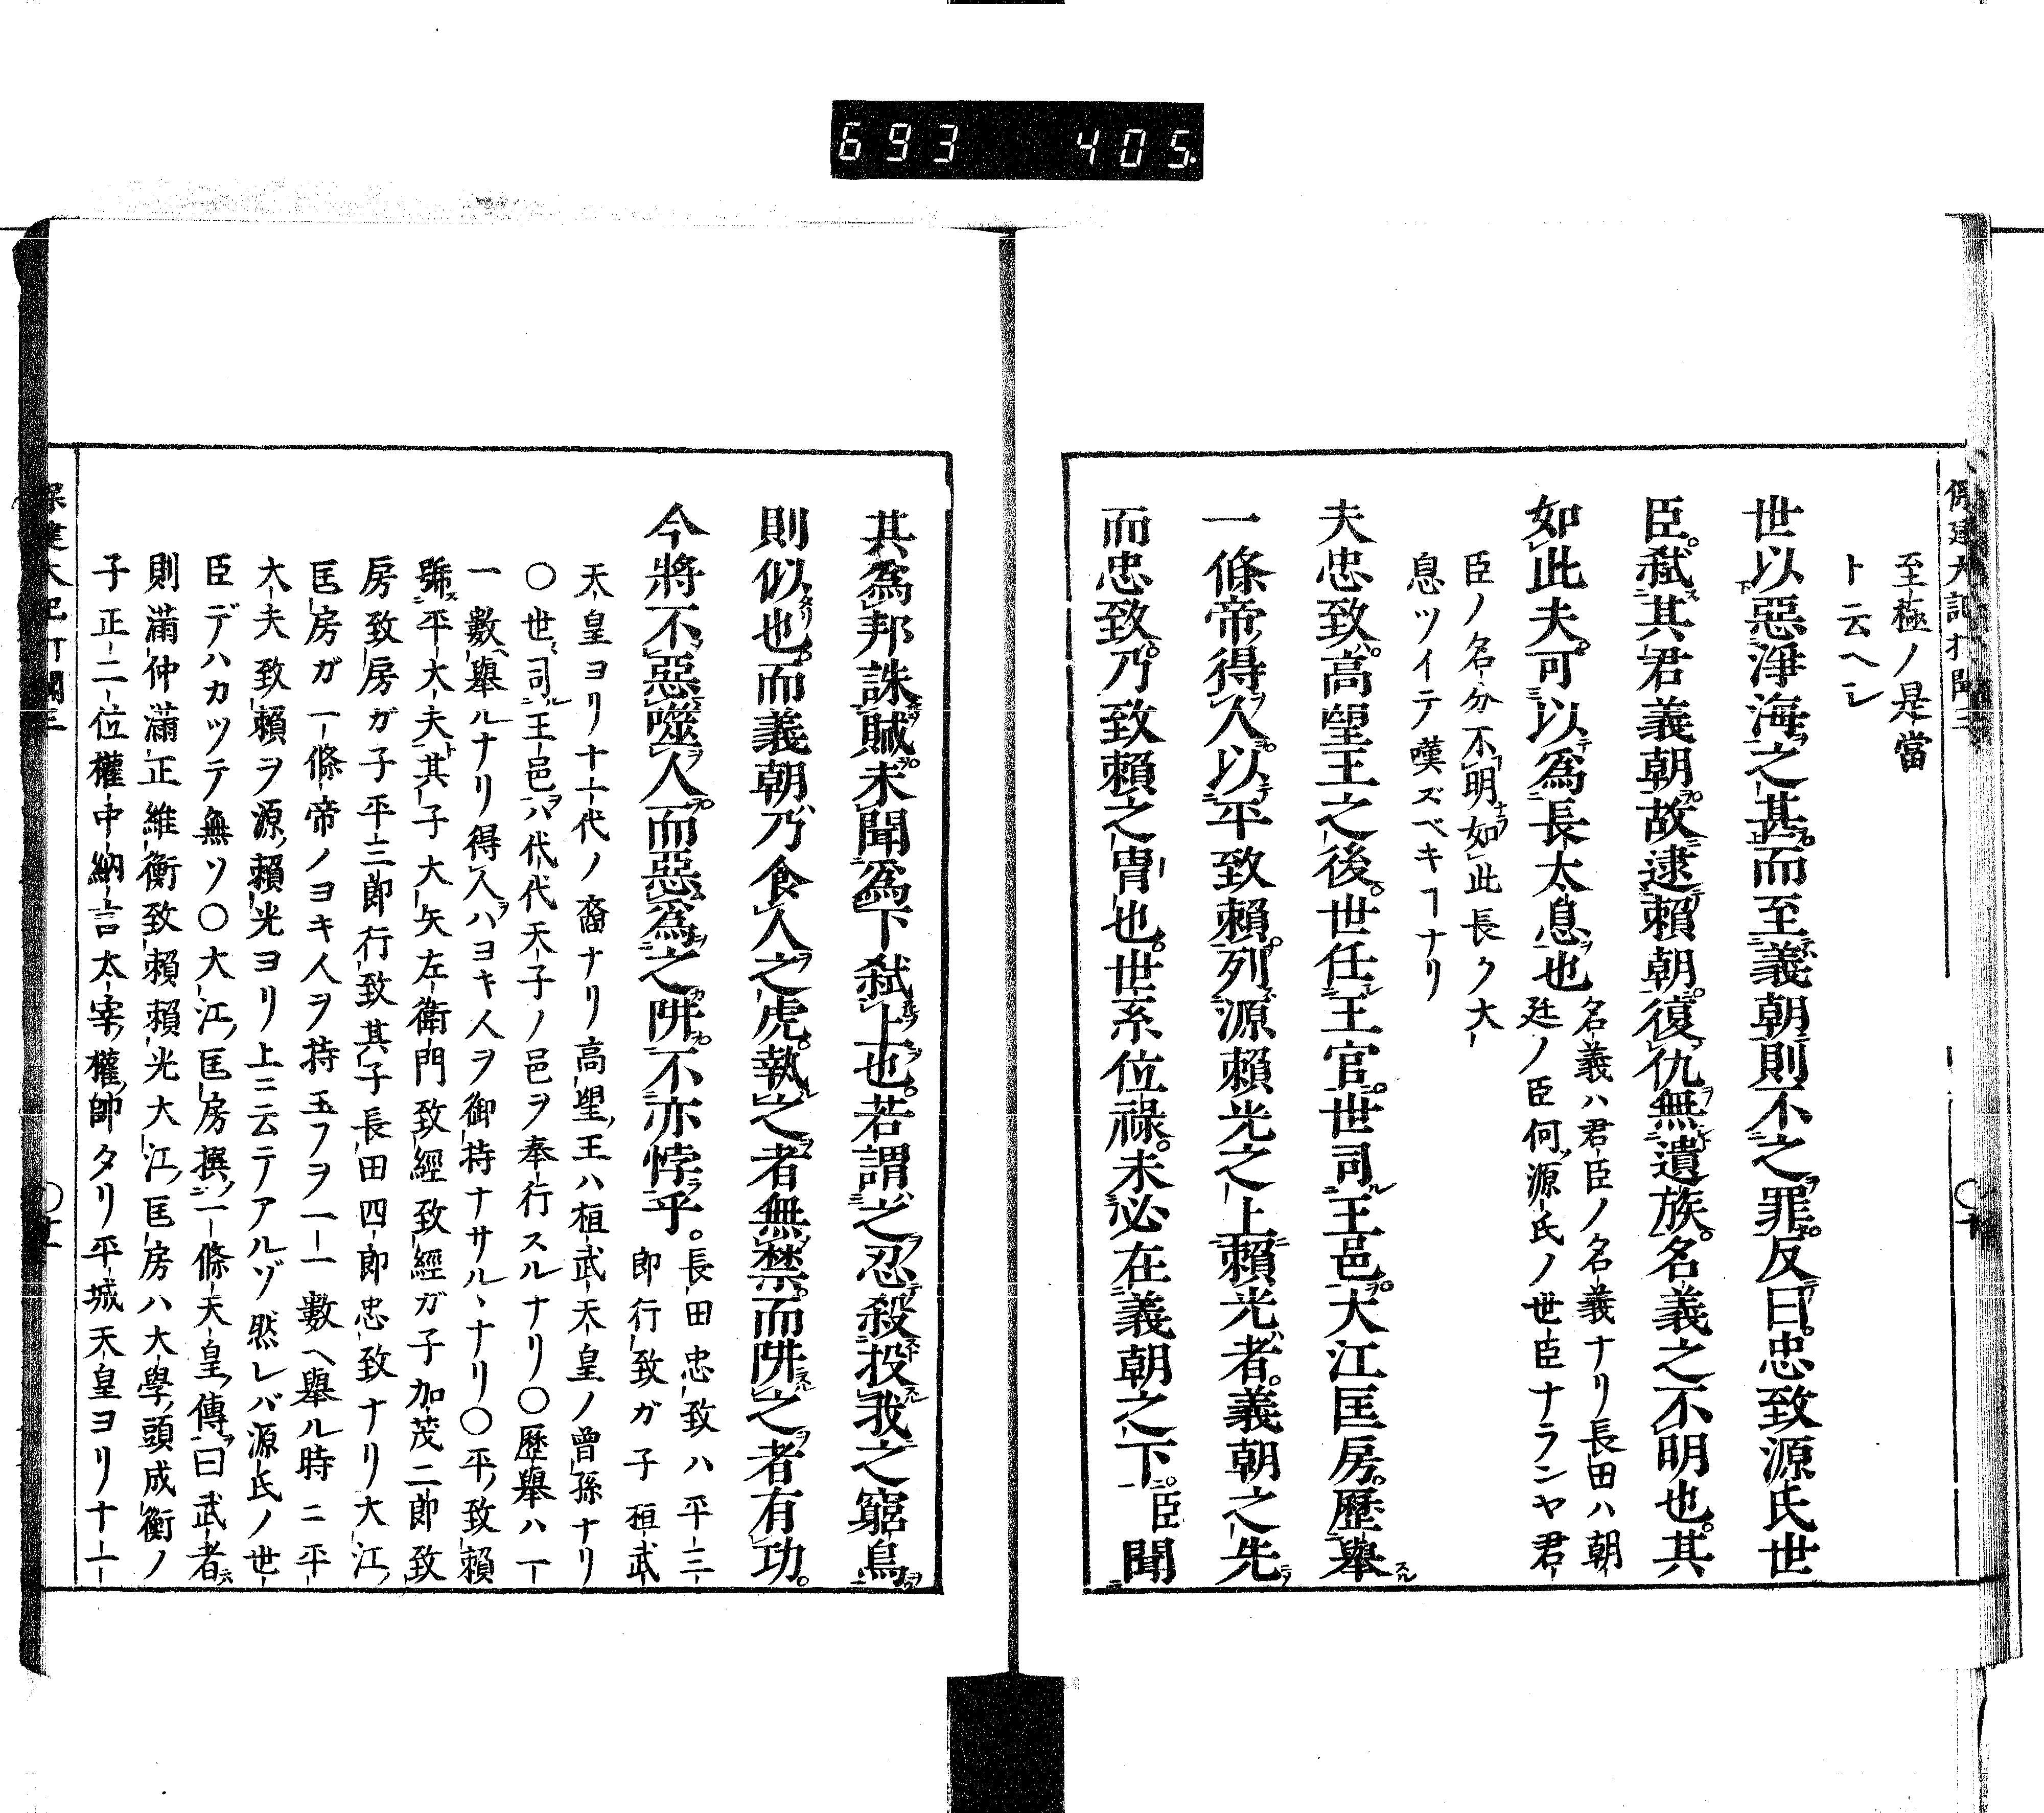 693 405
保建大記打聞三
至極ノ是當
ト云ヘシ
世以惡淨海之甚而至義朝則不之罪反曰忠致源氏世
臣。弑其君義朝故逮賴朝。復仇無遺族。名義之不明也。其
如此夫。可以爲長太息也
名義ハ君臣ノ名義ナリ長田ハ朝
廷ノ臣何源氏ノ世臣ナランヤ君
臣ノ名分不明如此長ク大
息ツイテ嘆ズベキヿナリ
夫忠致。高望王之後。世任王官。世司王邑。大江匡房。歷擧
一條帝得人。以平致賴。列源賴光之上賴光者。義朝之先
而忠致。乃致賴之冑也。世系位祿。未必在義朝之下。臣聞
其爲邦誅賊。未聞爲下弑上也。若謂之忍殺投我之窮鳥
則似也。而義朝乃食人之虎。執之者無禁。而阱之者有功。
今將不惡噬人。而惡爲之阱。不亦悖乎。
長田忠致ハ平三
郎行致ガ子桓武
天皇ヨリ十一代ノ裔ナリ高望王ハ桓武天皇ノ曾孫ナリ
〇世司王邑ハ代代天子ノ邑ヲ奉行スルナリ〇歷擧ハ一
一數擧ルナリ得人ハヨキ人ヲ御持ナサルヽナリ〇平致賴
號平大夫其子大矢左衛門致經致經ガ子加茂二郎致
房致房ガ子平三郎行致其子長田四郎忠致ナリ大江
匡房ガ一條帝ノヨキ人ヲ持玉フヲ一一數ヘ擧ル時ニ平
大夫致賴ヲ源賴光ヨリ上ニ云テアルゾ然レバ源氏ノ世
臣デハカツテ無ツ〇大江匡房撰一條天皇傳曰武者
則滿仲滿正維衡致賴賴光大江匡房ハ大學頭成衡ノ
子正二位權中納言太宰權帥タリ平城天皇ヨリ十一